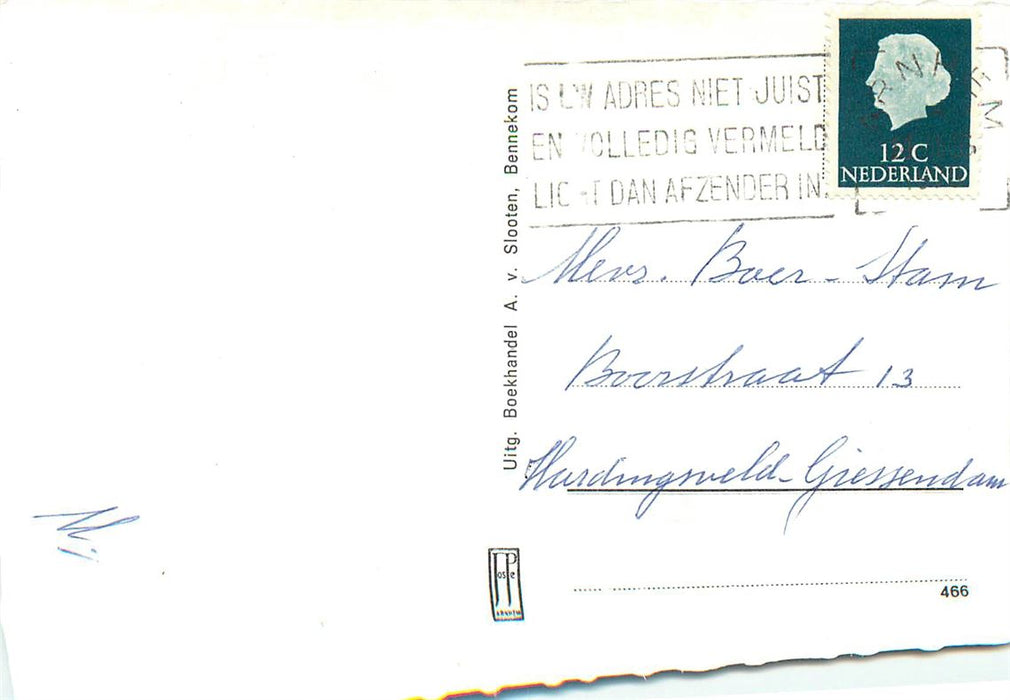 IS UW ADRES NIET JUIST
EN VOLLEDIG VERMELD
LICHT DAN AFZENDER IN.
12 C
NEDERLAND
Uitg. Boekhandel A. v. Slooten, Bennekom
Mevr. Boer-Stam
Boorstraat 13
Hardingsveld-Giessendam
JosPe
ARNHEM
466